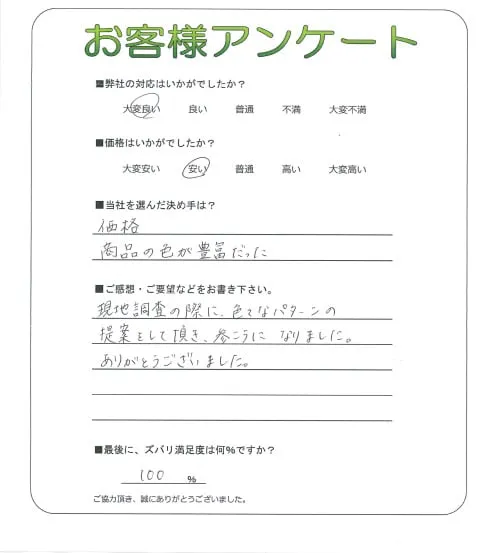 お客様アンケート
■弊社の対応はいかがでしたか?
大変良い 良い 普通 不満 大変不満
■価格はいかがでしたか?
大変安い 安い 普通 高い 大変高い
■当社を選んだ決め手は?
価格
商品の色が豊富だった
■ご感想・ご要望などをお書き下さい。
現地調査の際に、色々なパターンの
提案をして頂き、参こうに なりました。
ありがとうございました。
■最後に、ズバリ満足度は何%ですか?
100 %
ご協力頂き、誠にありがとうございました。